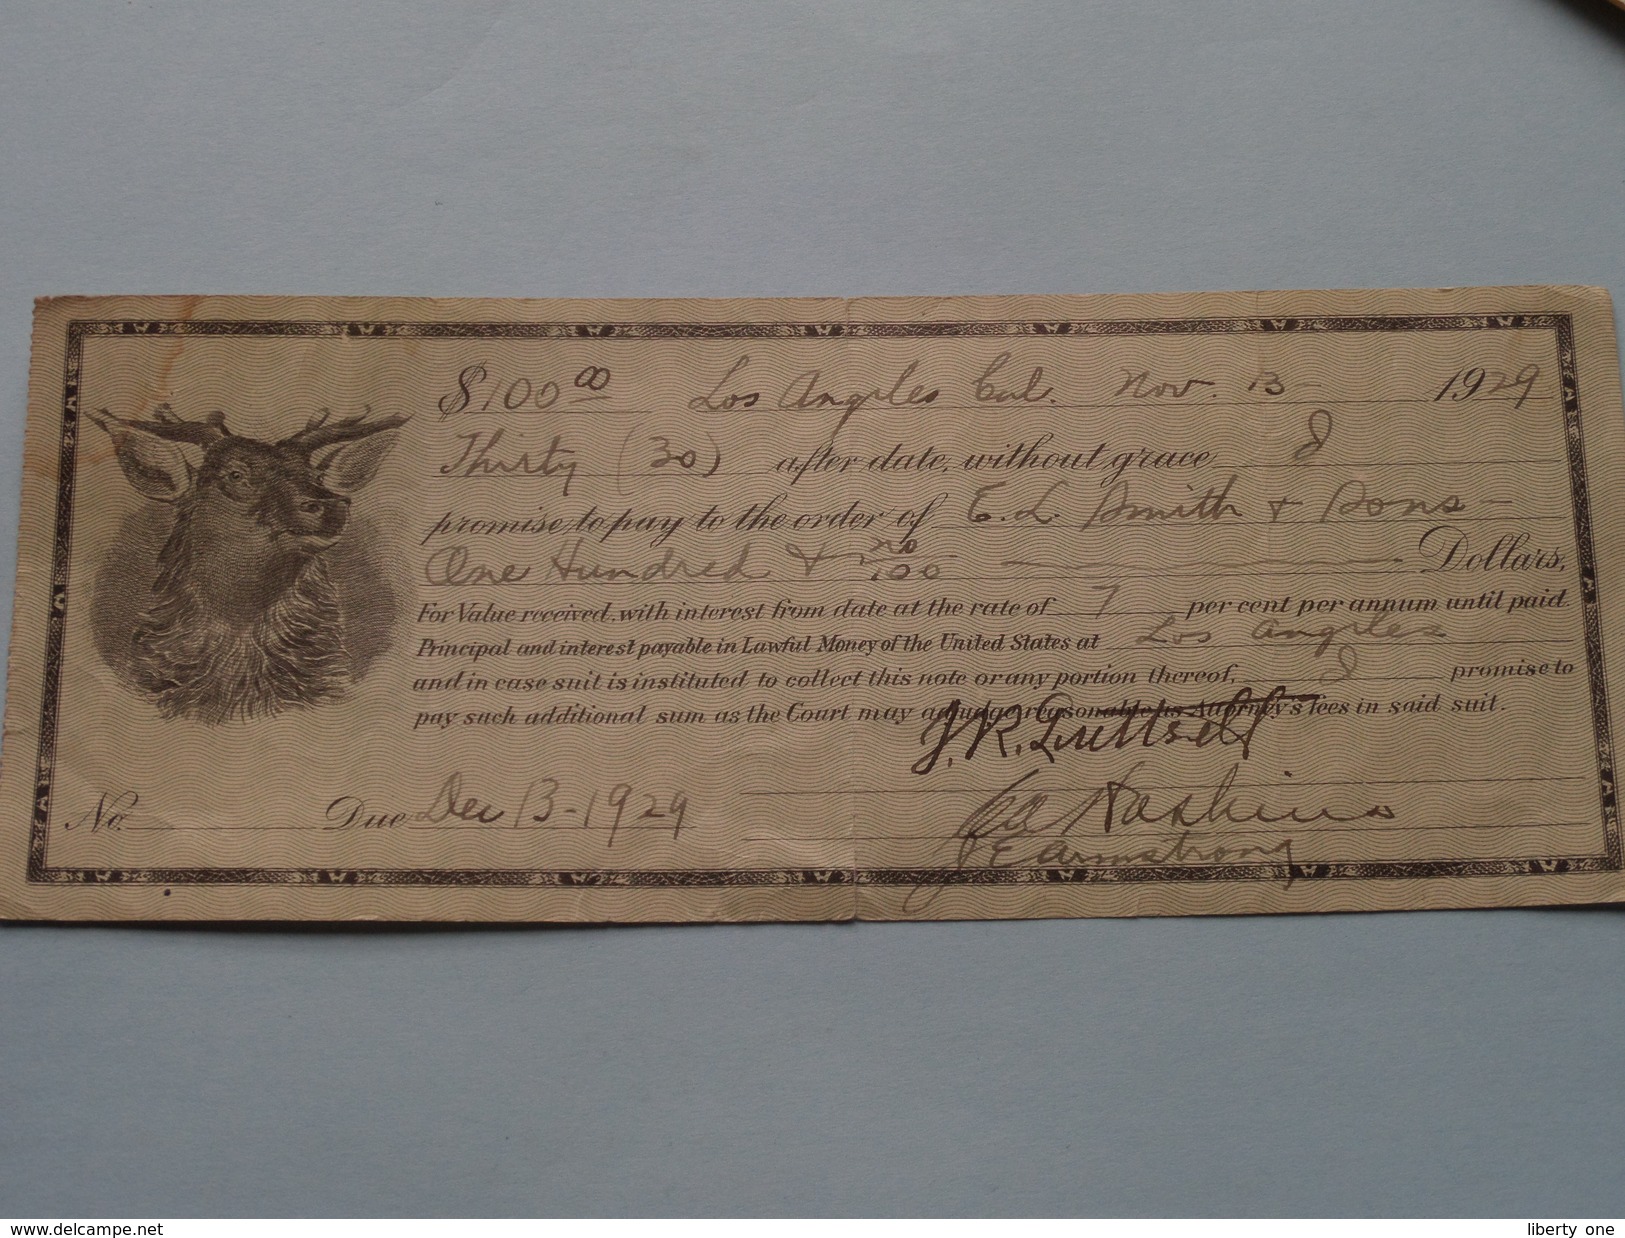 $100 00 Los Angeles Cal. Nov. 13 - 1929
Thirty (30) after date, without grace, I
promise to pay to the order of E. L. Smith & Sons -
One Hundred & no/100 Dollars,
For Value received, with interest from date at the rate of 7 per cent per annum until paid.
Principal and interest payable in Lawful Money of the United States at Los Angeles
and in case suit is instituted to collect this note or any portion thereof, I promise to
pay such additional sum as the Court may adjudge reasonable as Attorney's Fees in said suit.
J. R.
No. Due Dec 13 - 1929
Haskins
J E Armstrong
www.delcampe.net
liberty one